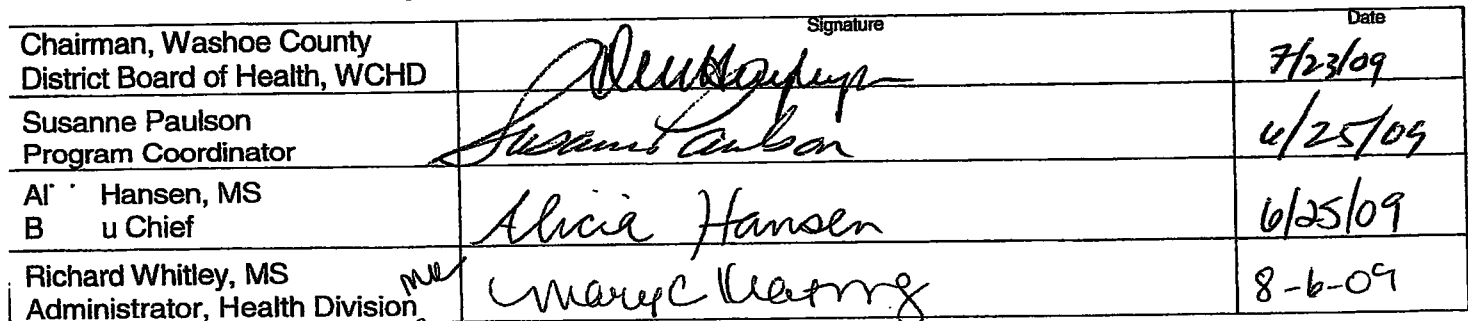 Signature Date
Chairman, Washoe County
District Board of Health, WCHD 7/23/09
Susanne Paulson
Program Coordinator Susanne Paulson 6/25/09
Hansen, MS
u Chief Alicia Hansen 6/25/09
Richard Whitley, MS
Administrator, Health Division Mary C 8-6-09